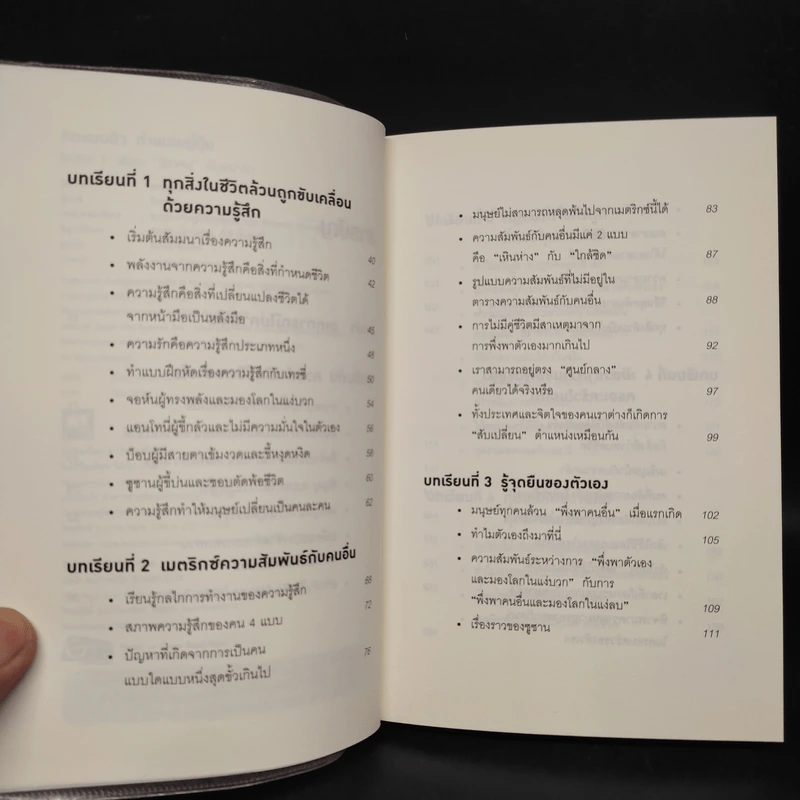 บทเรียนที่ 1 ทุกสิ่งในชีวิตล้วนถูกขับเคลื่อน
ด้วยความรู้สึก
• เริ่มต้นสัมมนาเรื่องความรู้สึก 40
• พลังงานจากความรู้สึกคือสิ่งที่กำหนดชีวิต 42
• ความรู้สึกคือสิ่งที่เปลี่ยนแปลงชีวิตได้
จากหน้ามือเป็นหลังมือ 45
• ความรักคือความรู้สึกประเภทหนึ่ง 48
• ทำแบบฝึกหัดเรื่องความรู้สึกกับเทรซี่ 50
• จอห์นผู้ทรงพลังและมองโลกในแง่บวก 54
• แอนโทนี่ผู้ขี้กลัวและไม่มีความมั่นใจในตัวเอง 56
• บ๊อบผู้มีสายตาเข้มงวดและขี้หงุดหงิด 58
• ซูซานผู้ขี้บ่นและชอบตัดพ้อชีวิต 60
• ความรู้สึกทำให้มนุษย์เปลี่ยนเป็นคนละคน 62
บทเรียนที่ 2 เมตริกซ์ความสัมพันธ์กับคนอื่น
• เรียนรู้กลไกการทำงานของความรู้สึก 68
• สภาพความรู้สึกของคน 4 แบบ 72
• ปัญหาที่เกิดจากการเป็นคน
แบบใดแบบหนึ่งสุดขั้วเกินไป 76
• มนุษย์ไม่สามารถหลุดพ้นไปจากเมตริกซ์นี้ได้ 83
• ความสัมพันธ์กับคนอื่นมีแค่ 2 แบบ
คือ "เหินห่าง" กับ "ใกล้ชิด" 87
• รูปแบบความสัมพันธ์ที่ไม่มีอยู่ใน
ตารางความสัมพันธ์กับคนอื่น 88
• การไม่มีคู่ชีวิตมีสาเหตุมาจาก
การพึ่งพาตัวเองมากเกินไป 92
• เราสามารถอยู่ตรง "ศูนย์กลาง"
คนเดียวได้จริงหรือ 97
• ทั้งประเทศและจิตใจของคนเราต่างก็เกิดการ
"สับเปลี่ยน" ตำแหน่งเหมือนกัน 99
บทเรียนที่ 3 รู้จุดยืนของตัวเอง
• มนุษย์ทุกคนล้วน "พึ่งพาคนอื่น" เมื่อแรกเกิด 102
• ทำไมตัวเองถึงมาที่นี่ 105
• ความสัมพันธ์ระหว่างการ "พึ่งพาตัวเอง
และมองโลกในแง่บวก" กับการ
"พึ่งพาคนอื่นและมองโลกในแง่ลบ" 109
• เรื่องราวของซูซาน 111